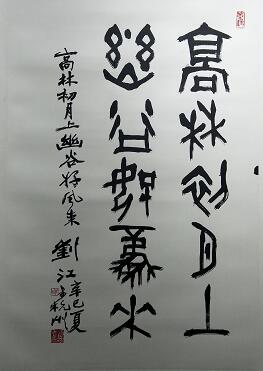 高林初月上
幽谷好風來
高林初月上幽谷好風来 劉江
辛巳夏
于杭州